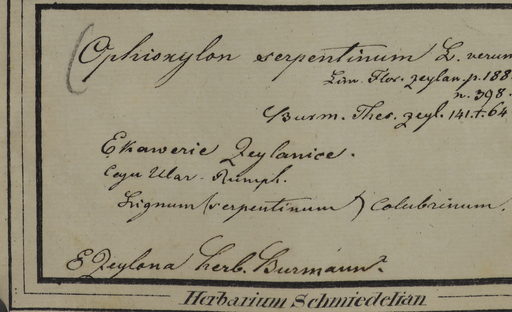 (Ophioxylon serpentinum L. verum
Linn. Flor. zeylan. p. 188
n. 398.
Burm. Thes. zeyl. 141. t. 64
Ekawerie Zeylanice.
Caju Ular. Rumph.
Lignum (serpentinum) Colubrinum.
E Zeylona herb. Burmann.
Herbarium Schmiedelian